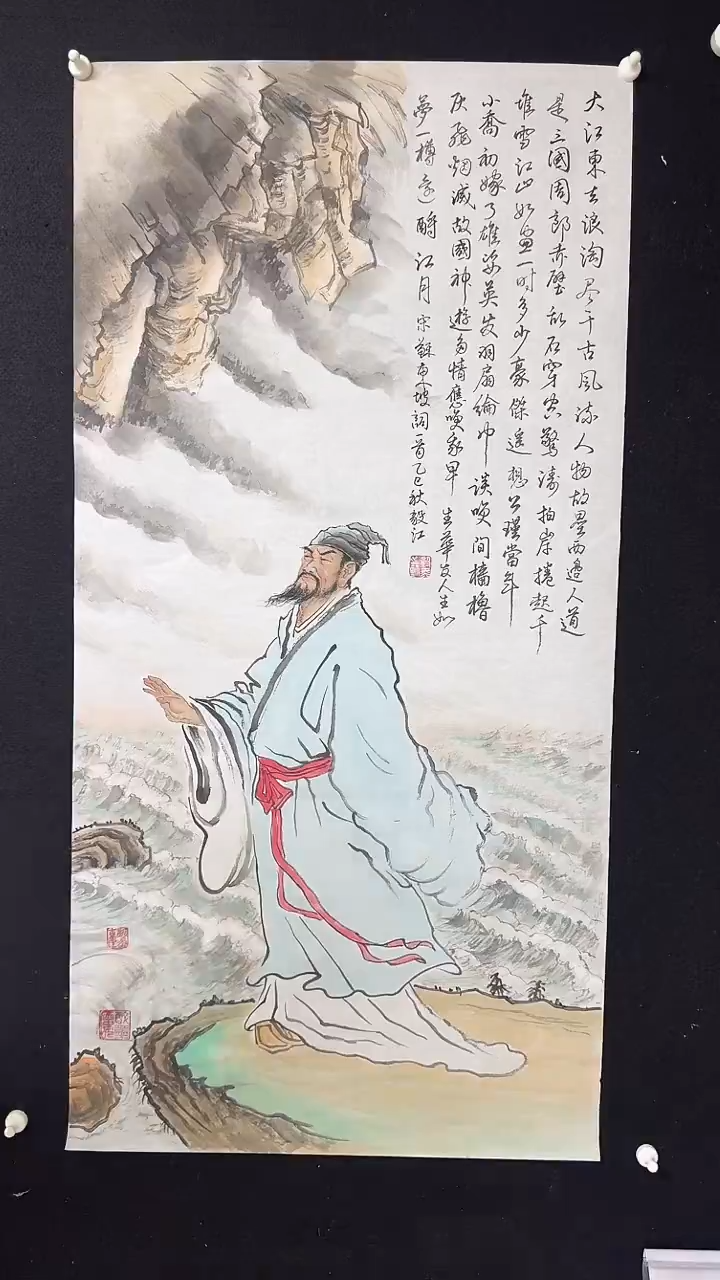 大江東去浪淘尽千古風流人物故壘西邊人道
是三國周郎赤壁乱石穿空驚濤拍岸捲起千
堆雪江山如畫一時多少豪傑遥想公瑾當年
小喬初嫁了雄姿英发羽扇綸巾談笑間檣櫓
灰飛烟滅故國神遊多情應笑我早生華发人生如
夢一樽還酹江月宋蘇東坡詞一首乙巳秋毅江